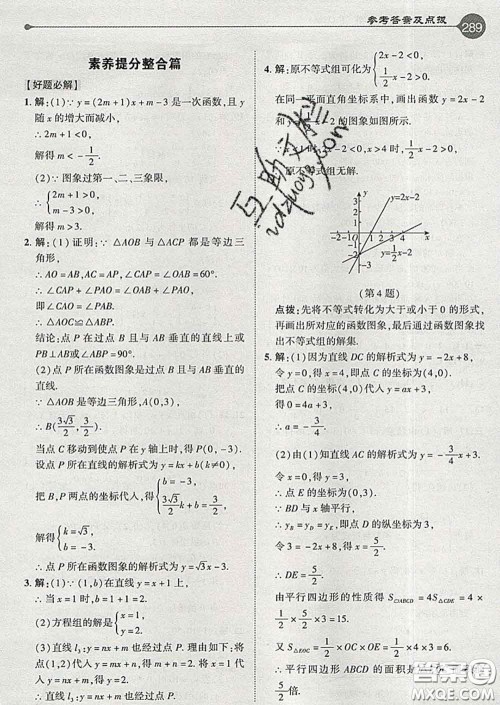 参考答案及点拨
289
素养提分整合篇
【好题必解】
1. 解：(1)∵y=(2m+1)x+m-3是一次函数，且y
随x的增大而减小，
∴2m+1<0，
解得m<-1/2.
(2)∵图象过第一、二、三象限，
∴{2m+1>0，
m-3>0，
解得m>3.
2. 解：(1)证明：∵△AOB与△ACP都是等边三
角形，
∴AO=AB,AC=AP,∠CAP=∠OAB=60°.
∴∠CAP+∠PAO=∠OAB+∠PAO.
即∠CAO=∠PAB.
∴△AOC≌△ABP.
结论：点P在过点B且与AB垂直的直线上或
PB⊥AB或∠ABP=90°.
(2)点P所在的函数图象是过点B且与AB垂直
的直线.
∵△AOB是等边三角形，A(0,3)，
∴B(3√3/2,3/2).
当点C移动到使点P在y轴上时，得P(0,-3).
设点P所在的直线的解析式为y=kx+b(k≠0).
把B,P两点的坐标代人，得{b=-3，
3√3/2k+b=3/2，
解得{k=√3，
b=-3.
∴点P所在的函数图象的解析式为y=√3x-3.
3. 解：(1)∵(1,b)在直线y=x+1上，
∴当x=1时，b=1+1=2.
(2)方程组的解为{x=1，
y=2.
(3)直线l₃:y=nx+m也经过点P.理由如下：将点
P(1,2)的坐标代人y=mx+n，得m+n=2.将x=1
代人y=nx+m，得y=m+n=2，
∴直线l₃:y=nx+m也经过点P.
4. 解：原不等式组可化为{2x-2<0，
1/2x-2>0.
在同一平面直角坐标系中，画出函数y=2x-2
和y=1/2x-2的图象如图所示.
原不等式组无解.
y
y=2x-2
y=1/2x-2
x
(第4题)
点拨：先将不等式转化为大于或小于0的形式，
再画出所对应的函数图象，最后通过函数图象找
出不等式组的解集.
5. 解：(1)因为直线DC的解析式为y=-2x+8，
令y=0，得x=4.
把点C的坐标(4,0)代人y=ax+3，
得0=4a+3.
∴a=-3/4.
(2)由(1)知直线AC的解析式为y=-3/4x+3.
令x=0，得y=3.
∴点E的坐标为(0,3).
∵BD与x轴平行，
∴点D的纵坐标为3.
令y=3，得x=5/2，
∴DE=5/2.
5/2×5/2×3=15.
又S△EOC=1/2×OC×OE=1/2×4×3=6.
5/2倍.
答案圈
MXQE.COM